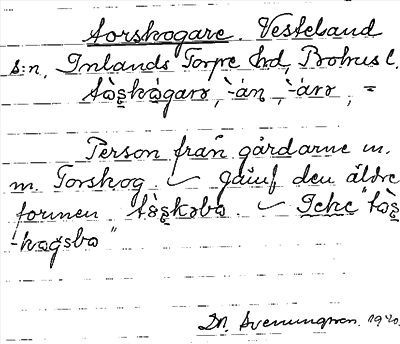 torskogare. Västeland
s:n, Inlands Torpe hd, Bohus l.
tòs̥kògarə, -̀án, -̀árə, =
Person från gårdarne m.
m. Torskog. — Jämf den äldre
formen tòs̥kəbə. — Icke "tòs̥
-kogsbo"
D. N. Svenungsson. 1920.